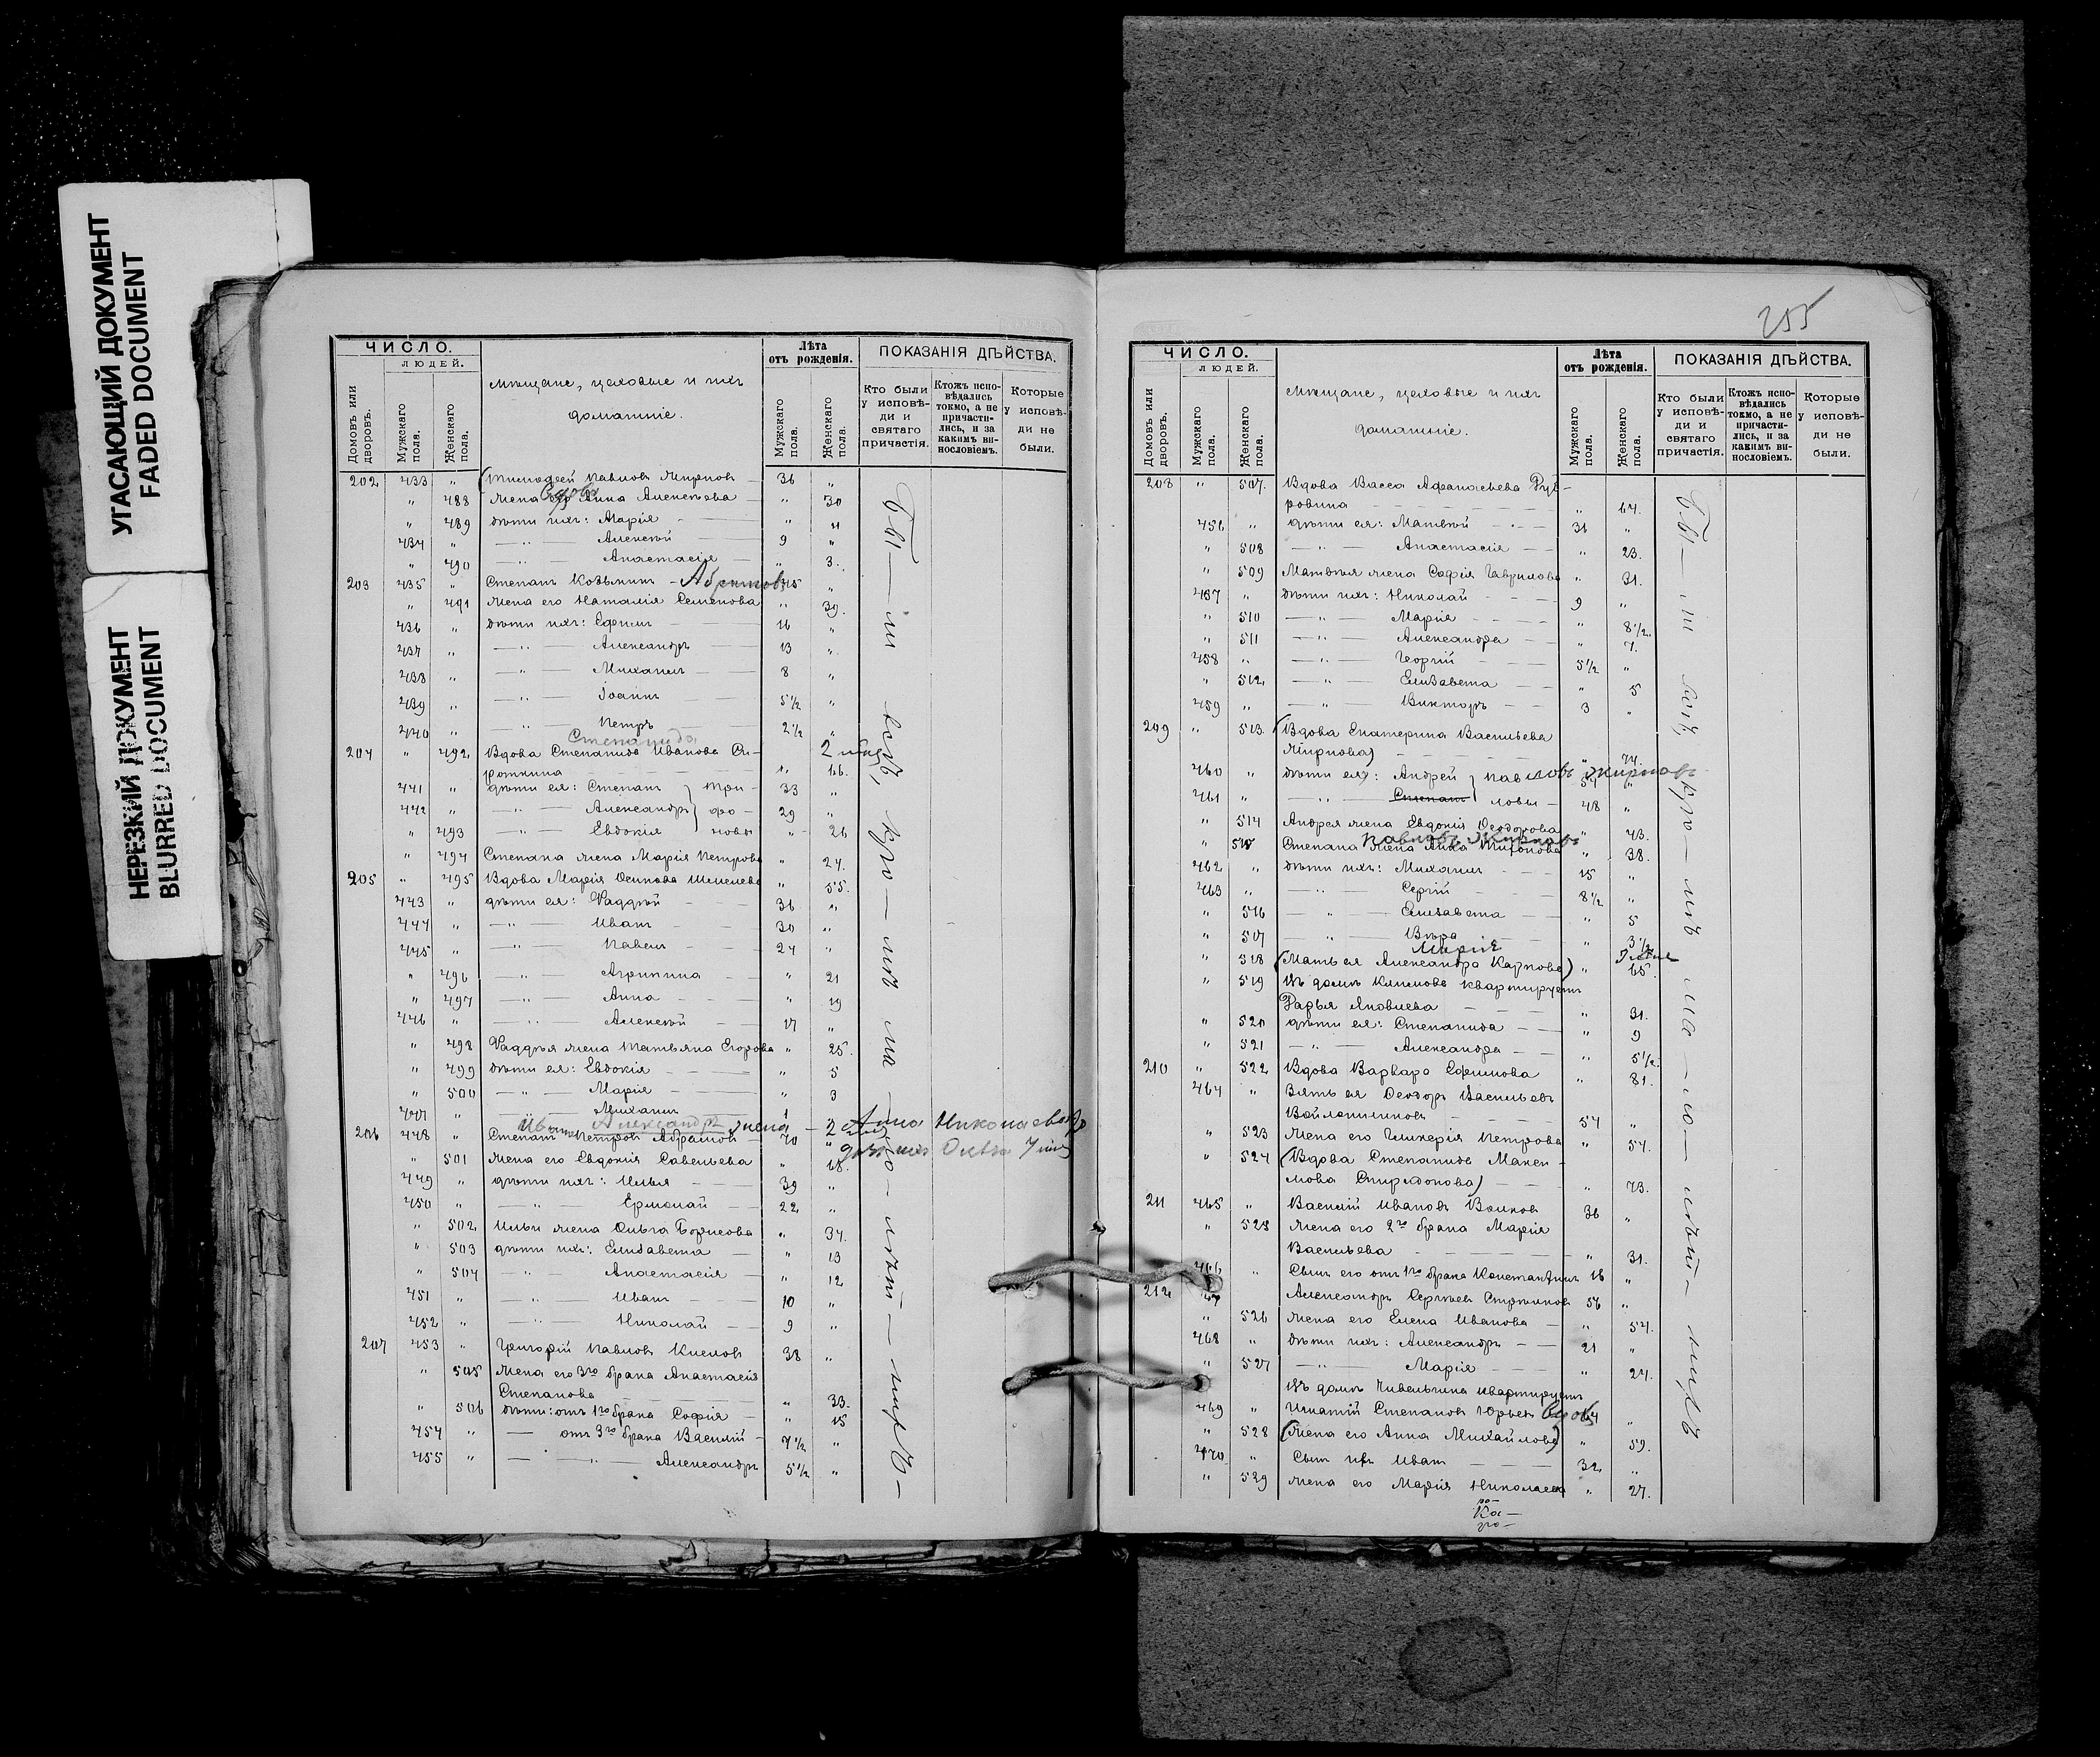 УГАСАЮЩИЙ ДОКУМЕНТ
FADED DOCUMENT
НЕРЕЗКИЙ ДОКУМЕНТ
BLURRED DOCUMENT
ЧИСЛО.
ЛЮДЕЙ.
Домовъ или дворовъ.
Мужскаго пола.
Женскаго пола.
Мѣщане, цеховые и ихъ
домашніе.
Лѣта
отъ рожденія.
Мужскаго пола.
Женскаго пола.
ПОКАЗАНІЯ ДѢЙСТВА.
Кто были у исповѣ-ди и святаго причастія.
Ктожъ испо-вѣдались токмо, а не причасти-лись, и за какимъ ви-нословіемъ.
Которые у исповѣ-ди не были.
202 433 " Тимофей Павловъ Жирновъ — 36 "
" 488 жена его Анна Алексѣева — " 30
вдова
" 489 дѣти ихъ: Марія — " 11
434 " — " — Алексѣй — 9 "
" 490 — " — Анастасія — " 3.
203 435 " Степанъ Козьминъ — Абрамовъ 45 "
" 491 жена его Наталія Семенова " 39.
436 " дѣти ихъ: Ефимъ — 16 "
437 " — " — Александръ — 13 "
438 " — " — Михаилъ — 8 "
439 " — " — Іоаннъ 5 1/2 "
440 " — " — Петръ — 2 1/2 "
Степанида
204 " 492 Вдова Степанида Иванова Си-
роткина — " 66.
441 " дѣти ея: Степанъ } Три- 33 "
442 " — " — Александръ } фо- 29 "
" 493 — " — Евдокія } новы " 26
" 494 Степана жена Марія Петрова " 24.
205 " 495 Вдова Марія Осипова Шепелева " 55.
443 " дѣти ея: Фаддѣй — 36 "
444 " — " — Иванъ — 30 "
445 " — " — Павелъ — 24 "
" 496 — " — Агрипина — " 21
" 497 — " — Анна — " 19
446 " — " — Алексѣй — 17 "
" 498 Фаддѣя жена Татьяна Егорова " 25.
" 499 дѣти ея: Евдокія — " 5
" 500 — " — Марія — " 3
447 " — Михаилъ — 1
Александръ жена — Анна Николаевна
206 448 " Степанъ Петровъ Абрамовъ — 70 "
" 501 жена его Евдокія Савельева " 68.
449 " дѣти ихъ: Илья — 39 "
450 " — " — Ермолай — 22 "
" 502 Ильи жена Ольга Борисова " 34.
" 503 дѣти ихъ: Елизавета — " 13
" 504 — " — Анастасія — " 12
451 " — " — Иванъ — 10 "
452 " — " — Николай — 9 "
207 453 " Григорій Павловъ Киселовъ 38 "
" 505 жена его 3го брака Анастасія
Степанова — " 33.
" 506 дѣти: отъ 1го брака Софія — " 15
454 " — отъ 3го брака Василій — 7 1/2 "
455 " — " — Александръ 5 1/2 "
Бы — ли всѣ, кро — мѣ ма — ло — лѣт — нихъ —
255
ЧИСЛО.
ЛЮДЕЙ.
Домовъ или дворовъ.
Мужскаго пола.
Женскаго пола.
Мѣщане, цеховые и ихъ
домашніе.
Лѣта
отъ рожденія.
Мужскаго пола.
Женскаго пола.
ПОКАЗАНІЯ ДѢЙСТВА.
Кто были у исповѣ-ди и святаго причастія.
Ктожъ испо-вѣдались токмо, а не причасти-лись, и за какимъ ви-нословіемъ.
Которые у исповѣ-ди не были.
208 " 507. Вдова Васса Афанасьева
" 64.
456 " дѣти ея: Матвѣй — 36 "
" 508 — " — Анастасія — " 23.
" 509 Матвѣя жена Софія Гаврилова " 31.
457 " дѣти ихъ: Николай — 9 "
" 510 — " — Марія — " 8 1/2.
" 511 — " — Александра — " 7.
458 " — " — Георгій — 5 1/2 "
" 512 — " — Елизавета — " 5
459 " — " — Викторъ — 3 "
209 " 513 (Вдова Екатерина Васильева
Жирнова) — " 74.
460 " дѣти ея: Андрей } Пав- Жирновъ "
461 " — " — Степанъ } ловы — 48 "
" 514 Андрея жена Евдокія Ѳеодорова " 43.
Павловъ Жирновъ
" 515 Степана жена Анна " 38.
462 " дѣти ихъ: Михаилъ — 15 "
463 " — " — Сергій — 8 1/2 "
" 516 — " — Елизавета — " 5
" 507 — " — Вѣра — " 3 1/2
Марія
" 518 (Мать ея Александра Карпова) " 65.
" 519 Въ домѣ Климова квартируетъ
Дарья Яковлева — " 31.
" 520 дѣти ея: Степанида — " 9
" 521 — " — Александра — " 5 1/2.
210 " 522 Вдова Варвара Ефимова " 81.
464 " Зять ея Ѳеодоръ Васильевъ
— 54 "
" 523 жена его Гликерія Петрова " 54.
" 524 (Вдова Степанида Макси-
мова Спиридонова) — " 73.
211 465 " Василій Ивановъ Волковъ 36 "
" 525 жена его 2го брака Марія
Васильева — " 31.
466 " Сынъ его отъ 1го брака Константинъ 16 "
212 467 Александръ Сергѣевъ 56 "
" 526 жена его Елена Иванова — " 54.
468 " дѣти ихъ: Александръ — 21 "
" 527 — " — Марія — " 24.
Въ домѣ квартируетъ
469 " Игнатій Степановъ Юрьевъ вдовъ 64 "
" 528 (жена его Анна Михайлова) " 59.
470 " Сынъ ихъ Иванъ — 32 "
" 529 жена его Марія Николаева " 27.
Бы — ли всѣ, кро — мѣ ма — ло — лѣт — нихъ